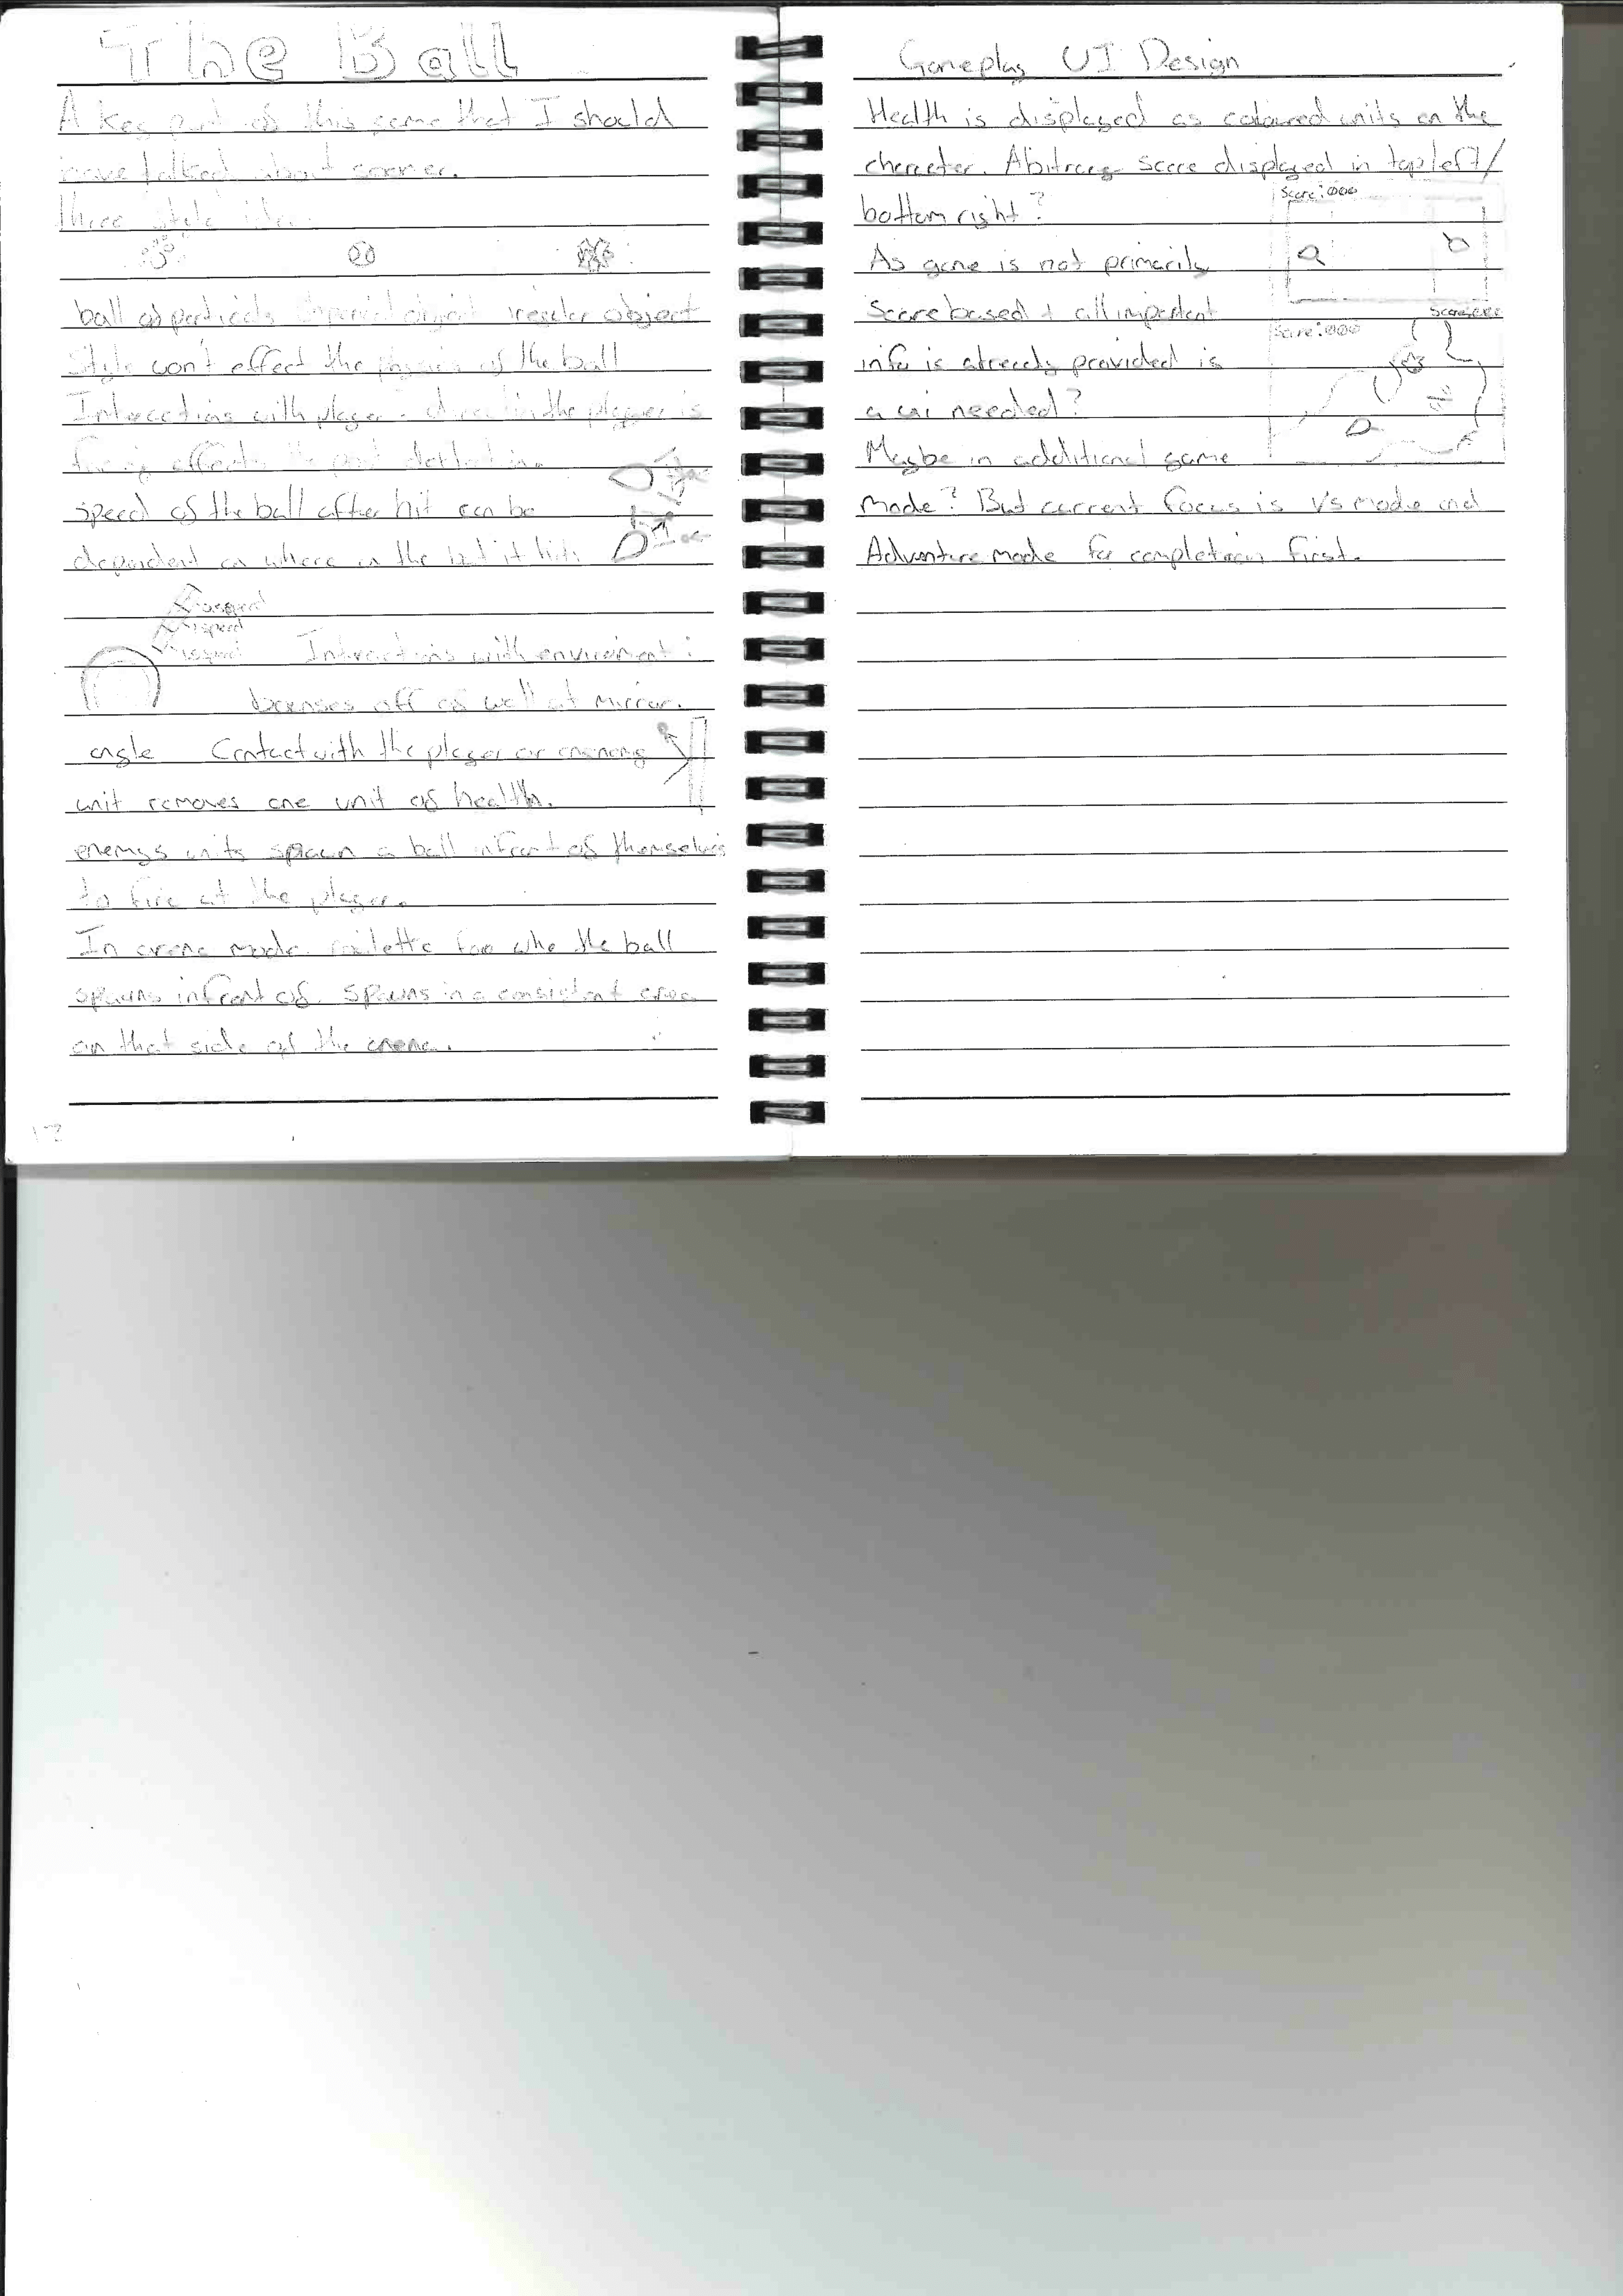 The Ball
A key part of this game that I should
have talked about sooner.
three style ideas
ball of particals object iregular object
Style won't effect the physics of the ball
Interactions with player - direction the player is
facing effects the deflection.
speed of the ball after hit can be
dependent on where on the bat it hits
speed
speed
speed
Interactions with enviroment:
bounses off of wall at mirror.
angle Contact with the player or enemy
unit removes one unit of health.
enemys units spawn a ball infront of themselves
to fire at the player.
In arena mode. for who the ball
spawns infront of. Spawns in a consistant area
on that side of the arena.
Gameplay UI Design
Health is displayed as coloured units on the
character. Abitrary score displayed in top left/
bottom right?
Score:000
As game is not primarily
Score based + all important
Score:000
Score:000
info is already provided is
a ui needed?
Maybe in additional game
mode? But current focus is Vs mode and
Adventure mode for completion first.